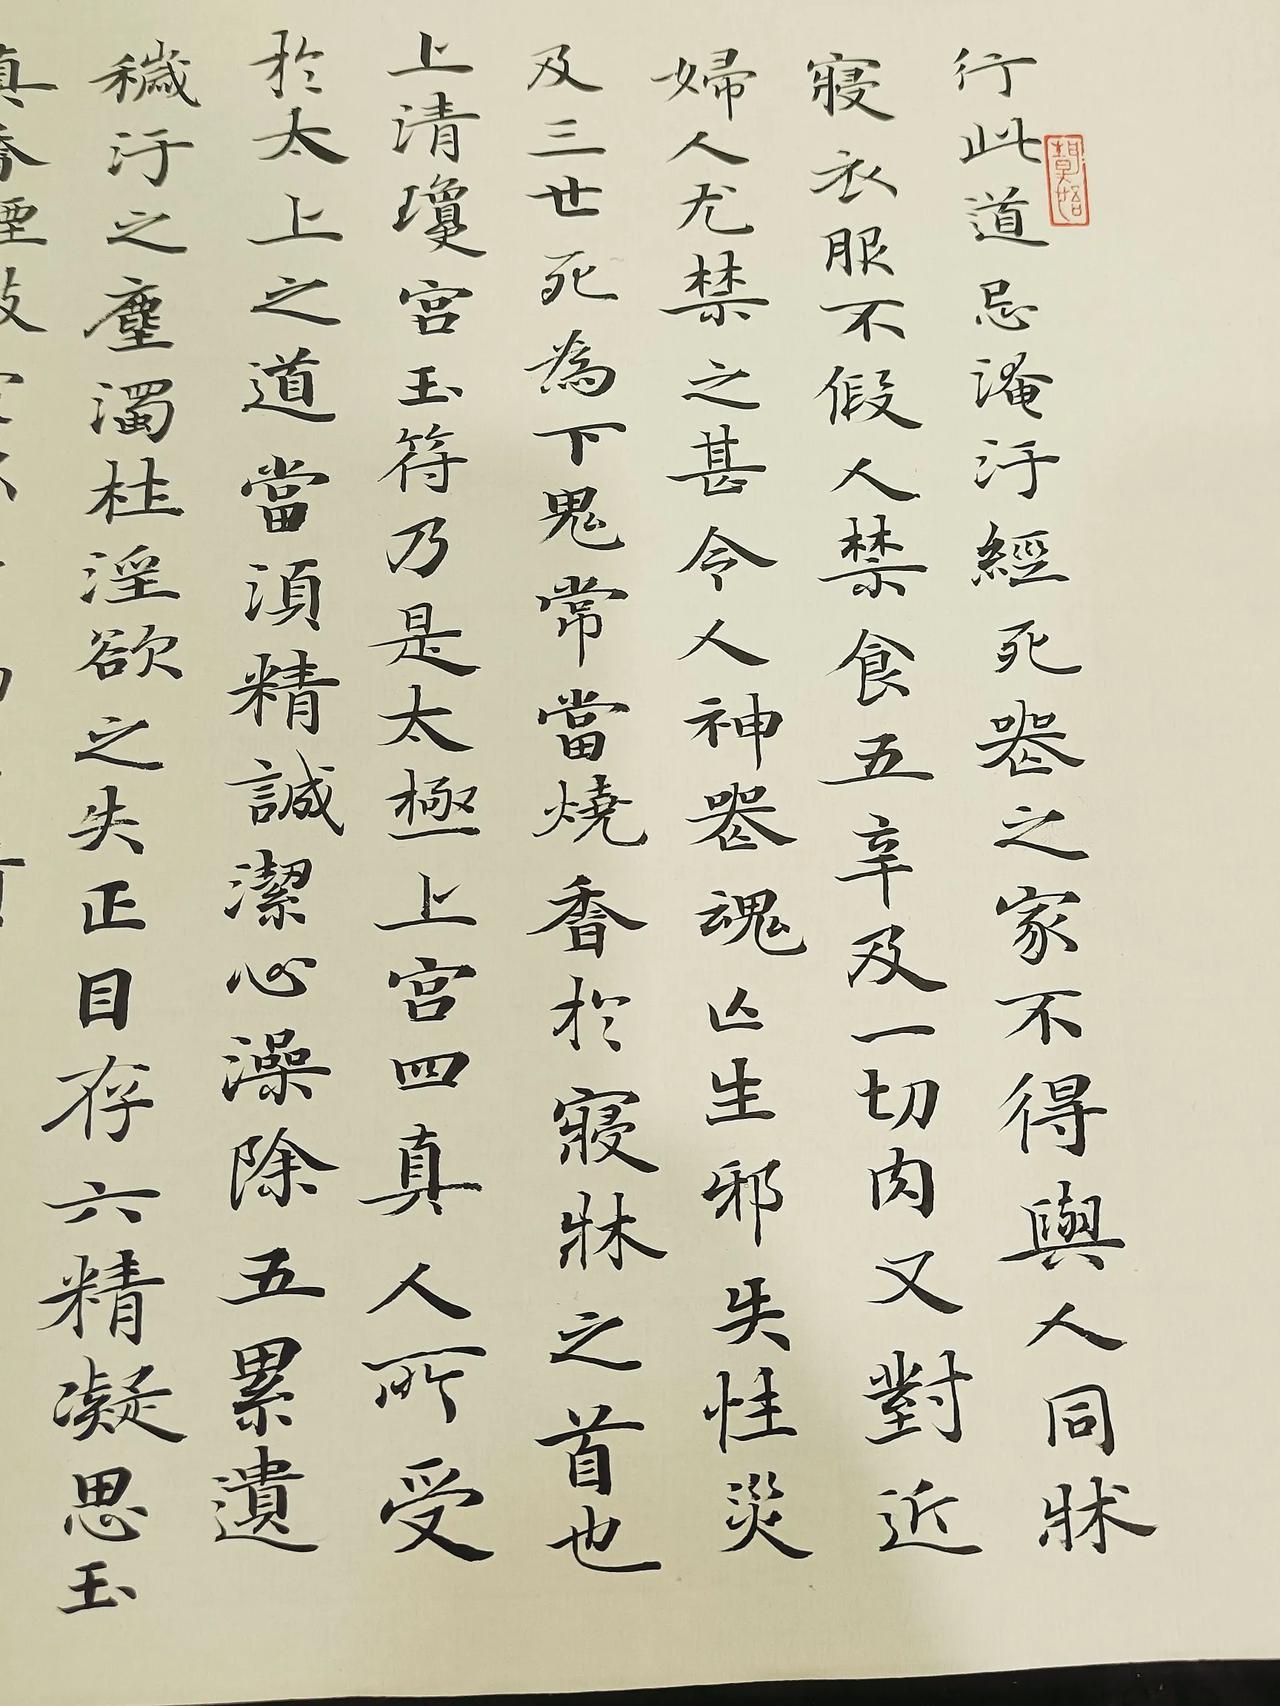 行此道忌淹汙經死喪之家不得與人同牀
寢衣服不假人禁食五辛及一切肉又對近
婦人尤禁之甚令人神喪魂亡生邪失性災
及三世死為下鬼常當燒香於寢牀之首也
上清瓊宮玉符乃是太極上宮四真人所受
於太上之道當湏精誠潔心澡除五累遺
穢汙之塵濁杜淫欲之失正目存六精凝思玉
真香煙散室